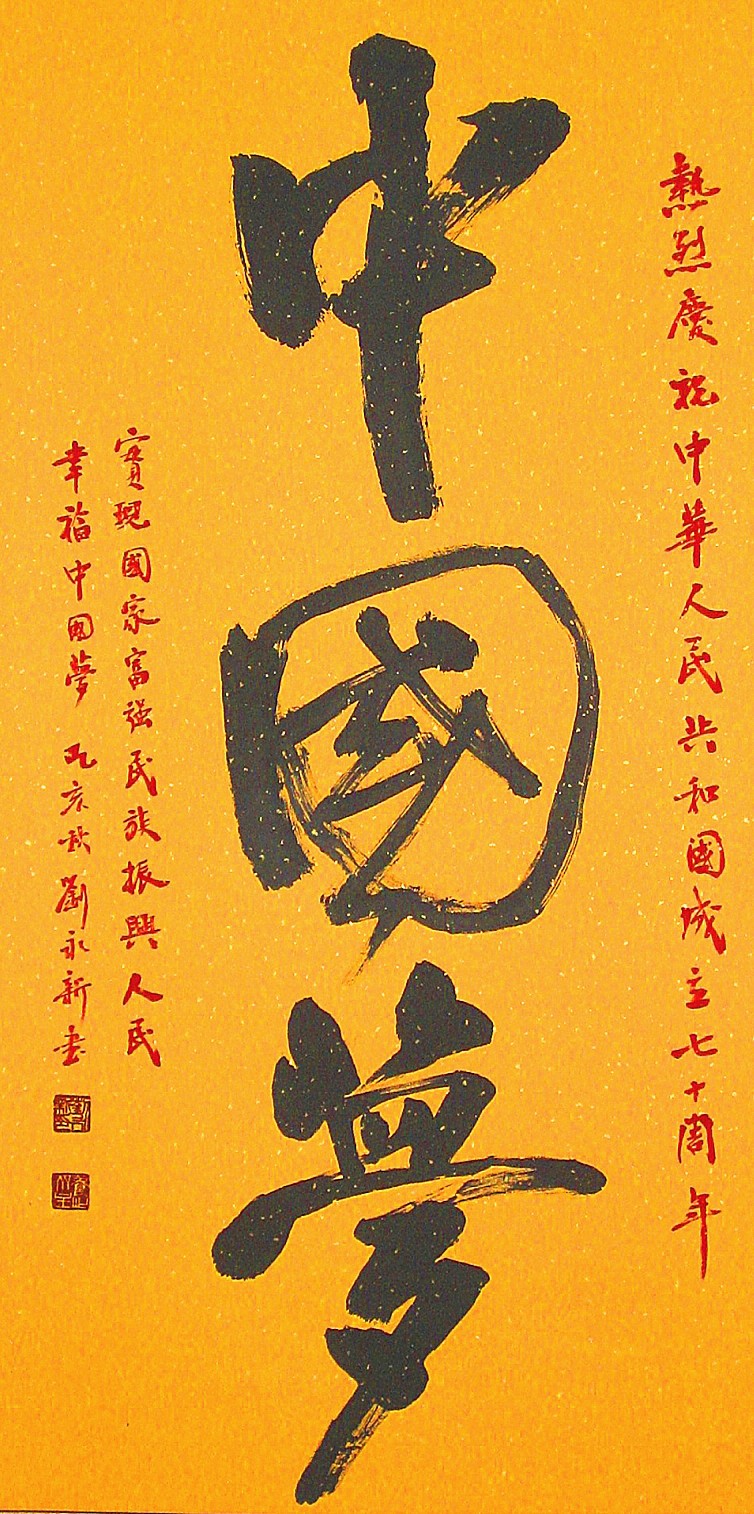 熱烈慶祝中華人民共和國成立七十周年
中國夢
實現國家富強民族振興人民
幸福中國夢 己亥秋 劉永新書